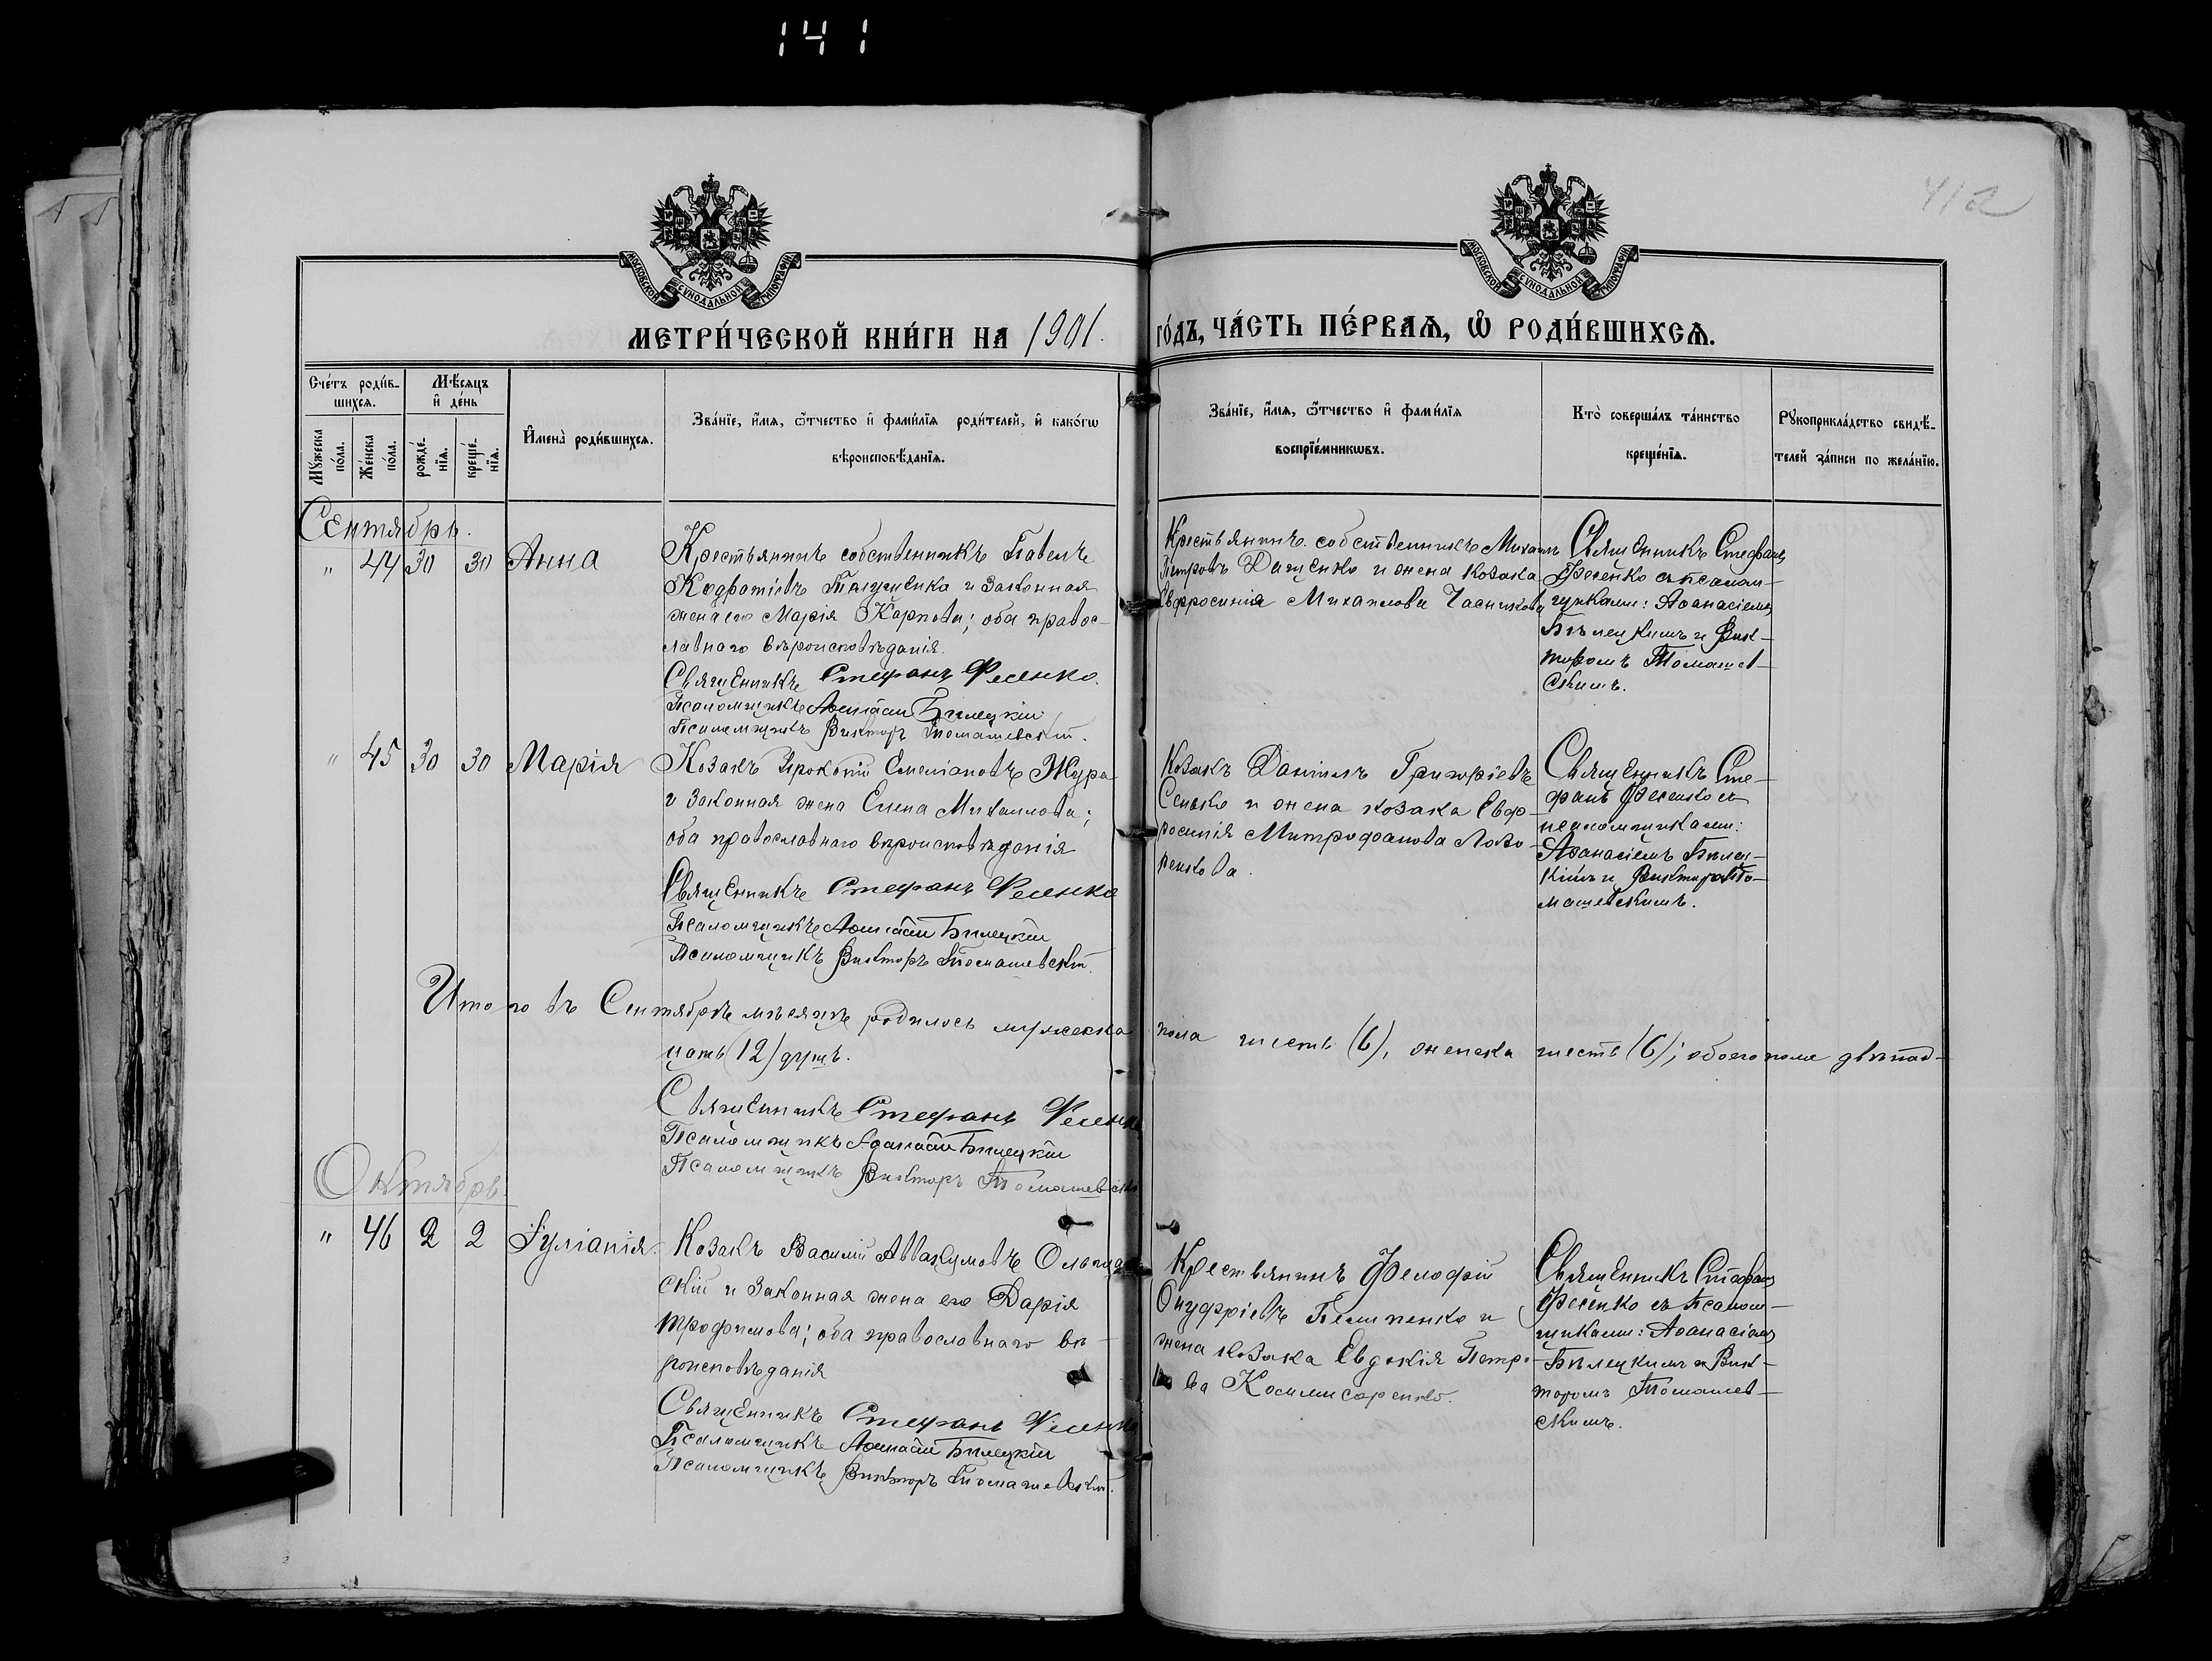 141
412
МОСКОВСКОЙ СѴНОДАЛЬНОЙ ТИПОГРАФІИ
МОСКОВСКОЙ СѴНОДАЛЬНОЙ ТИПОГРАФІИ
МЕТРИ́ЧЕСКОЙ КНИ́ГИ НА 1901. ГО́ДЪ, ЧА́СТЬ ПЕ́РВАѦ, Ѡ҆ РОДИ́ВШИХСѦ.
Сче́тъ роди́в-
шихсѧ.
Мѣ́сѧцъ
и҆ де́нь
Мꙋ́жеска
по́ла.
Же́нска
по́ла.
рожде́-
нїѧ.
креще́-
нїѧ.
И҆мена̀ роди́вшихсѧ.
Зва́нїе, и҆́мѧ, ѻ҆́тчество и҆ фами́лїѧ роди́телей, и҆ како́гѡ
вѣроисповѣ́данїѧ.
Зва́нїе, и҆́мѧ, ѻ҆́тчество и҆ фами́лїѧ
воспрїе́мникѡвъ.
Кто̀ соверша́лъ та́инство
креще́нїѧ.
Рꙋкоприкла́дство свидѣ́-
телей за́писи по жела́нїю.
Сентябрь.
" 44 30 30 Анна
Крестьянинъ собственникъ Павелъ
и законная
жена его Марія Карпова; оба правос-
лавнаго вѣроисповѣданія.
Священникъ Стефанъ Фесенко.
Псаломщикъ Аѳанасій Билецкій
Псаломщикъ Викторъ Томашевскій.
Крестьянинъ собственникъ Михаилъ
Петровъ Даценко и жена козака
Евфросинія Михаилова Часникова
Священникъ Стефанъ
Фесенко съ псалом-
щиками: Аѳанасіемъ
Бѣлецкимъ и Вик-
торомъ Томашев-
скимъ.
" 45 30 30 Марія
Козакъ Прокопій Емеліановъ Жура
и законная жена Елена Михаилова;
оба православнаго вѣроисповѣданія
Священникъ Стефанъ Фесенко
Псаломщикъ Аѳанасій Билецкій
Псаломщикъ Викторъ Томашевскій.
Козакъ Даніилъ Григоріевъ
Сенько и жена козака Евф-
росинія Митрофанова Лазо-
ренкова.
Священникъ Сте-
фанъ Фесенко съ
псаломщиками:
Аѳанасіемъ Билец-
кимъ и Викторомъ То-
машевскимъ.
Итого въ Сентябрѣ мѣсяцѣ родилось мужеска пола шесть (6), женска шесть (6); обоего пола двѣнад-
цать (12) душъ.
Священникъ Стефанъ Фесенко
Псаломщикъ Аѳанасій Билецкій
Псаломщикъ Викторъ Томашевскій
Октябрь.
" 46 2 2 Іуліанія.
Козакъ Василій Аввакумовъ Ольшан-
скій и законная жена его Дарія
Трофимова; оба православнаго вѣ-
роисповѣданія
Священникъ Стефанъ Фесенко
Псаломщикъ Аѳанасій Билецкій
Псаломщикъ Викторъ Томашевскій.
Крестьянинъ
Онуфріевъ Пилипенко и
жена козака Евдокія Петро-
ва Комисаренко.
Священникъ Стефанъ
Фесенко съ Псалом-
щиками: Аѳанасіемъ
Бѣлецкимъ и Вик-
торомъ Томашев-
скимъ.